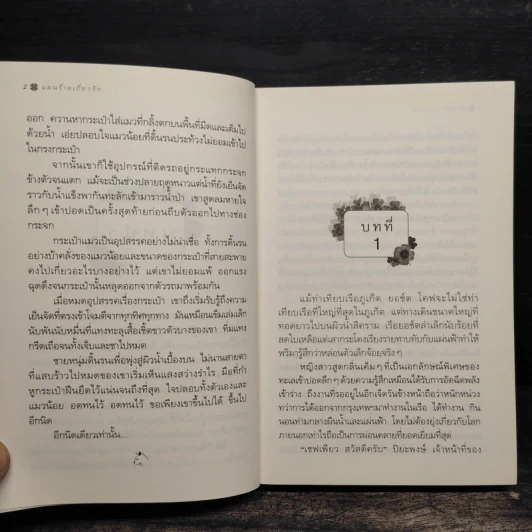 2 แผนร้ายเกี่ยวรัก
ออก ควานหากระเป๋าใส่แมวที่กลิ้งตกบนพื้นที่มืดและเต็มไป
ด้วยน้ำ เอ่ยปลอบใจแมวน้อยที่ดิ้นรนประท้วงไม่ยอมเข้าไป
ในกรงกระเป๋า
จากนั้นเขาก็ใช้อุปกรณ์ที่ติดรถอยู่กระแทกกระจก
ข้างตัวจนแตก แม้จะเป็นช่วงปลายฤดูหนาวแต่น้ำที่ยังเย็นจัด
ราวกับน้ำแข็งพากันทะลักเข้ามาราวน้ำป่า เขาสูดลมหายใจ
ลึกๆ เข้าปอดเป็นครั้งสุดท้ายก่อนถีบตัวออกไปทางช่อง
กระจก
กระเป๋าแมวเป็นอุปสรรคอย่างไม่น่าเชื่อ ทั้งการดิ้นรน
อย่างบ้าคลั่งของแมวน้อยและขนาดของกระเป๋าที่สายสะพาย
คงไปเกี่ยวอะไรบางอย่างไว้ แต่เขาไม่ยอมแพ้ ออกแรง
ฉุดดึงจนกระเป๋านั้นหลุดออกจากตัวรถมาพร้อมกัน
เมื่อหมดอุปสรรคเรื่องกระเป๋า เขาถึงเริ่มรับรู้ถึงความ
เย็นจัดที่ตรงเข้าโจมตีจากทุกทิศทุกทาง มันเหมือนเข็มเล่มเล็ก
นับพันนับหมื่นที่แทงทะลุเสื้อเชิ้ตขาวตัวบางของเขา ทิ่มแทง
กรีดเถือจนทั้งเจ็บและชาไปหมด
ชายหนุ่มดิ้นรนเพื่อพุ่งสู่ผิวน้ำเบื้องบน ไม่นานสายตา
ที่แสบร้าวไปหมดของเขาเริ่มเห็นแสงสว่างรำไร มือที่กำ
หูกระเป๋าฝืนยึดไว้แน่นจนถึงที่สุด ใจปลอบทั้งตัวเองและ
แมวน้อย อดทนไว้ อดทนไว้ ขอเพียงเขาขึ้นไปได้ ขึ้นไป
อีกนิด
อีกนิดเดียวเท่านั้น
บทที่
1
แม้ท่าเทียบเรือภูเก็ต ยอชต์ โคฟจะไม่ใช่ท่า
เทียบเรือที่ใหญ่ที่สุดในภูเก็ต แต่ทางเดินขนาดใหญ่ที่
ทอดยาวไปบนผิวน้ำสีคราม เรือยอชต์ลำเล็กนับร้อยที่
ลดใบเหลือแต่เสากระโดงเรียงรายทาบทับกับแผ่นฟ้าทำให้
พริมารู้สึกว่าหล่อนตัวเล็กจ้อยจริงๆ
หญิงสาวสูดกลิ่นเค็มๆ ที่เป็นเอกลักษณ์พิเศษของ
ทะเลเข้าปอดลึกๆ ด้วยความรู้สึกเหมือนได้รับการอัดฉีดพลัง
เข้าร่าง ถึงงานที่รออยู่ในอีกเจ็ดวันข้างหน้าถือว่าหนักหน่วง
ทว่าการได้ออกจากกรุงเทพฯ มาทำงานในเรือ ได้ทำงาน กิน
นอนท่ามกลางผืนน้ำและแผ่นฟ้า โดยไม่ต้องยุ่งเกี่ยวกับโลก
ภายนอกเท่าไรถือเป็นการผ่อนคลายที่ยอดเยี่ยมที่สุด
"เชฟเพียว สวัสดีครับ" ปิยะพงษ์ เจ้าหน้าที่ของ